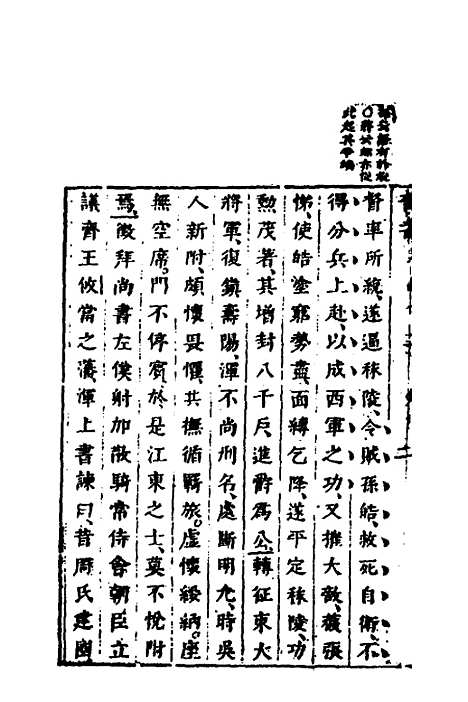 此起異平端
督率所統遂逼秣陵、令賊孫皓、救死自衛、不
得分兵上赴、以成西軍之功、又摧大敵、獲張
悌、使皓塗窮勢盡、面縛乞降、遂平定秣陵、功
勳茂著、其增封八千戶、進爵爲公、轉征東大
將軍、復鎮壽陽、渾不尚刑名、處斷明允、時吳
人新附、頗懷畏懼、渾撫循羇旅。虛懷綏納。座
無空席。門不停賓、於是江東之士、莫不悅附
焉、徵拜尚書左僕射加散騎常侍會朝臣立
議齊王攸當之藩、渾上書諫曰、昔周氏建國